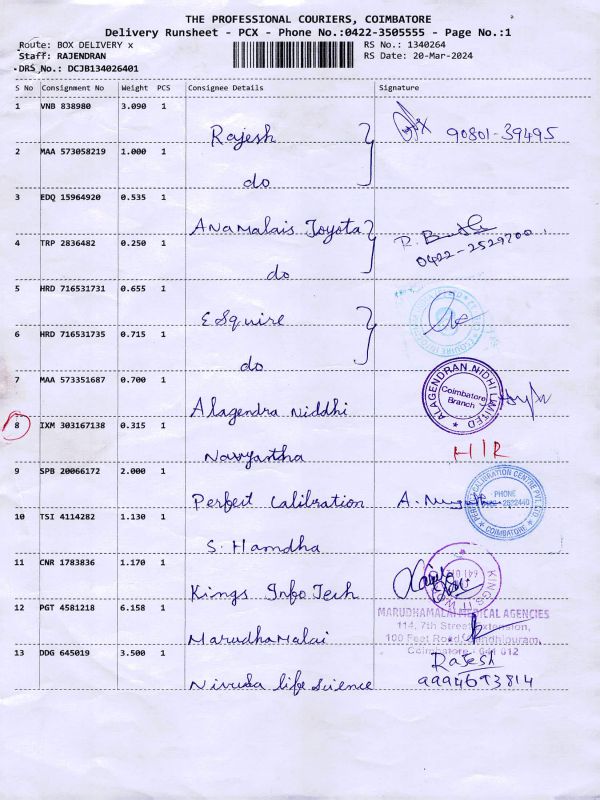 THE PROFESSIONAL COURIERS, COIMBATORE
Delivery Runsheet - PCX - Phone No.:0422-3505555 - Page No.:1
Route: BOX DELIVERY x RS No.: 1340264
Staff: RAJENDRAN RS Date: 20-Mar-2024
DRS No.: DCJB134026401
S No Consignment No Weight PCS Consignee Details Signature
1 VNB 838980 3.090 1
Rajesh 90801-39495
2 MAA 573058219 1.000 1
do
3 EDQ 15964920 0.535 1
Anamalais Toyota
4 TRP 2836482 0.250 1
0422-2529700
do
5 HRD 716531731 0.655 1
Esquire
6 HRD 716531735 0.715 1
do
7 MAA 573351687 0.700 1
ALAGENDRAN NIDHI LIMITED
Coimbatore
Branch
Alagendra Niddhi
8 IXM 303167138 0.315 1
Navyantha H/R
9 SPB 20066172 2.000 1
Perfect Calibration
CALIBRATION CENTRE PVT. LTD
PHONE
COIMBATORE
10 TSI 4114282 1.130 1
S. Hamdha
11 CNR 1783836 1.170 1
KINGS
Kings Info Tech
12 PGT 4581218 6.158 1
MARUDHAMALAI MEDICAL AGENCIES
114, 7th Street Extension,
100 Feet Road, Gandhipuram,
Coimbatore - 641 012
Marudhamalai
13 DDG 645019 3.500 1
Rajesh
Nivuda life Science